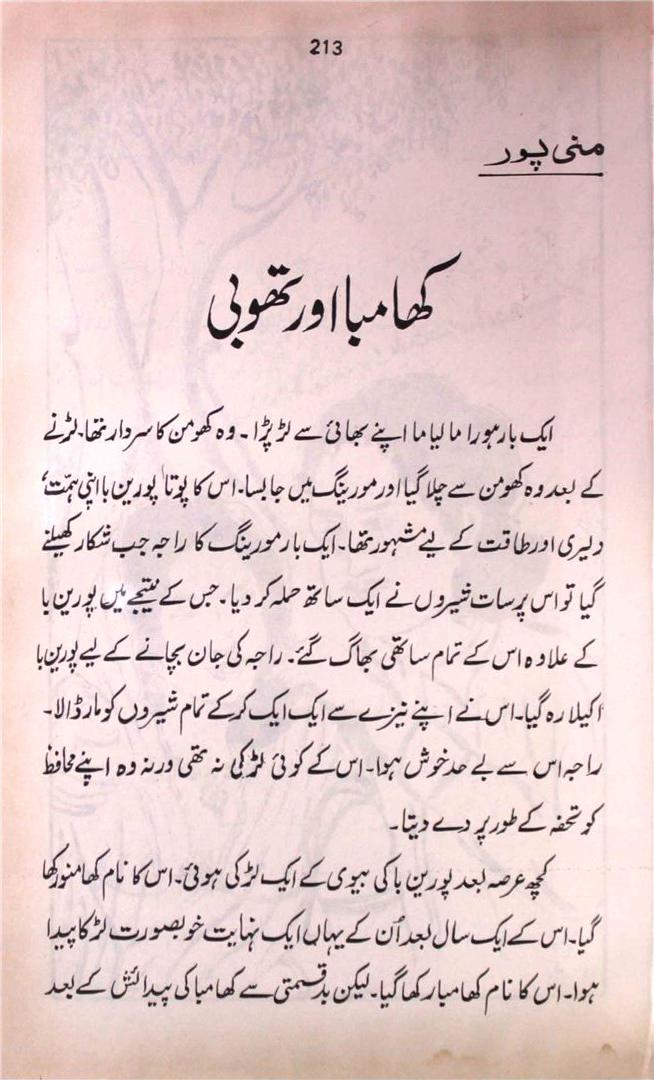 213
منی پور
کھامبا اور تھوبی
ایک بار ہورا ما لیا ما اپنے بھائی سے لڑ پڑا۔ وہ کھومن کا سردار تھا۔ لڑنے
کے بعد وہ کھومن سے چلا گیا اور مورینگ میں جا بسا۔ اس کا پوتا پورین با اپنی ہمّت،
دلیری اور طاقت کے لیے مشہور تھا۔ ایک بار مورینگ کا راجہ جب شکار کھیلنے
گیا تو اس پر سات شیروں نے ایک ساتھ حملہ کر دیا۔ جس کے نتیجے میں پورین با
کے علاوہ اس کے تمام ساتھی بھاگ گئے۔ راجہ کی جان بچانے کے لیے پورین با
اکیلا رہ گیا۔ اس نے اپنے نیزے سے ایک ایک کر کے تمام شیروں کو مار ڈالا۔
راجہ اس سے بے حد خوش ہوا۔ اس کے کوئی لڑکی نہ تھی ورنہ وہ اپنے محافظ
کو تحفہ کے طور پر دے دیتا۔
کچھ عرصہ بعد پورین با کی بیوی کے ایک لڑکی ہوئی۔ اس کا نام کھامنو رکھا
گیا۔ اس کے ایک سال بعد اُن کے یہاں ایک نہایت خوبصورت لڑکا پیدا
ہوا۔ اس کا نام کھامبا رکھا گیا۔ لیکن بدقسمتی سے کھامبا کی پیدائش کے بعد